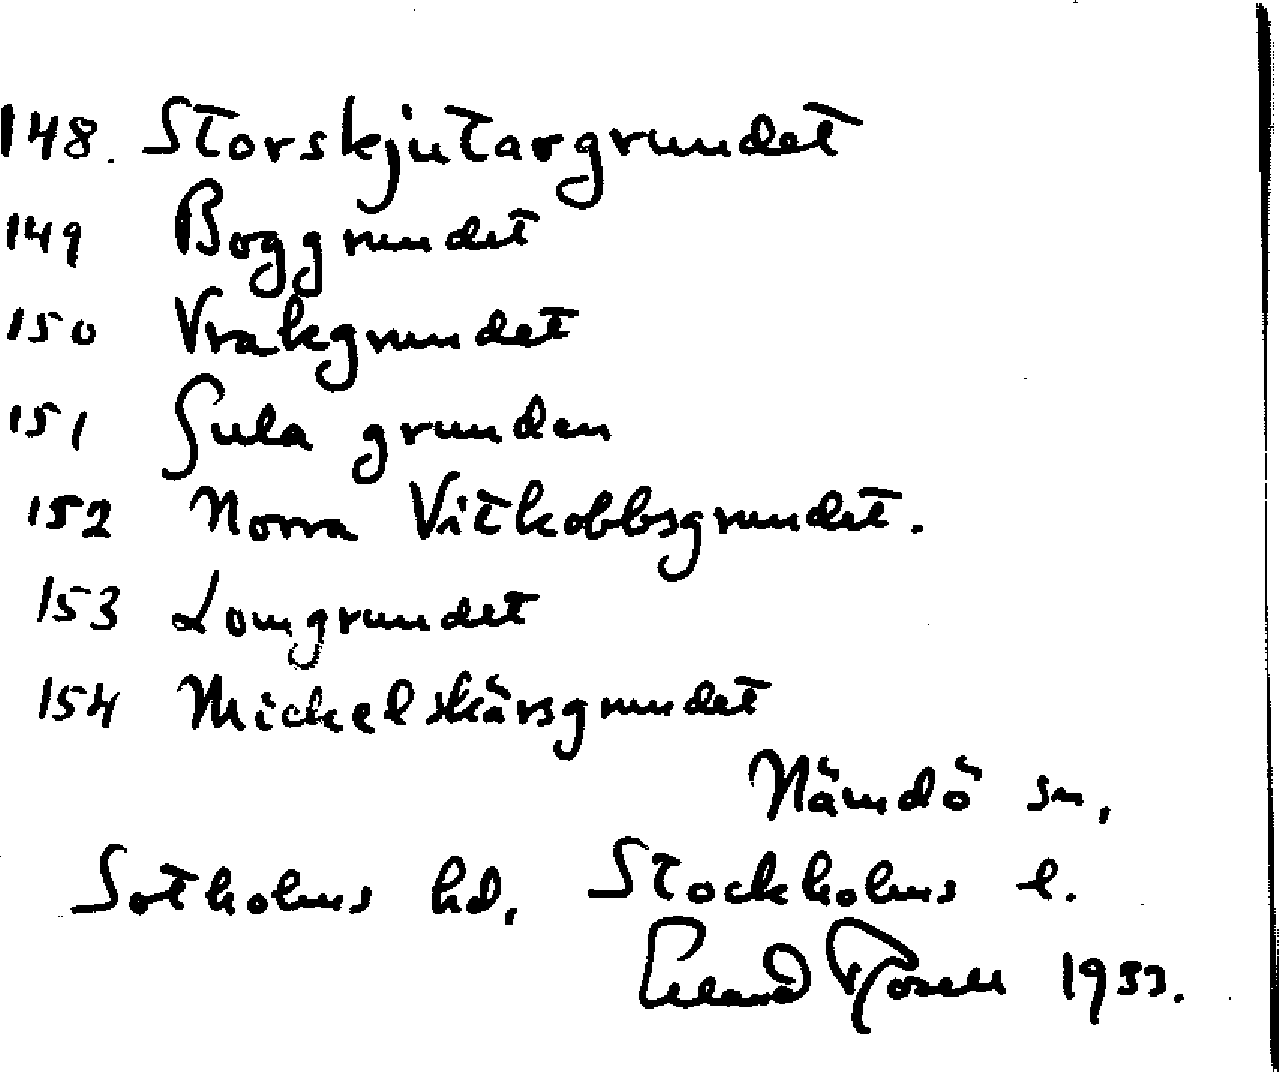 148. Storskjutargrundet
149 Boggrundet
150 Vrakgrundet
151 Gula grunden
152 Norra Vitkobbsgrundet.
153 Lomgrundet
154 Mickelskärsgrundet
Nämdö sn,
Sotholms hd, Stockholms l.
Erland Rosell 1933.